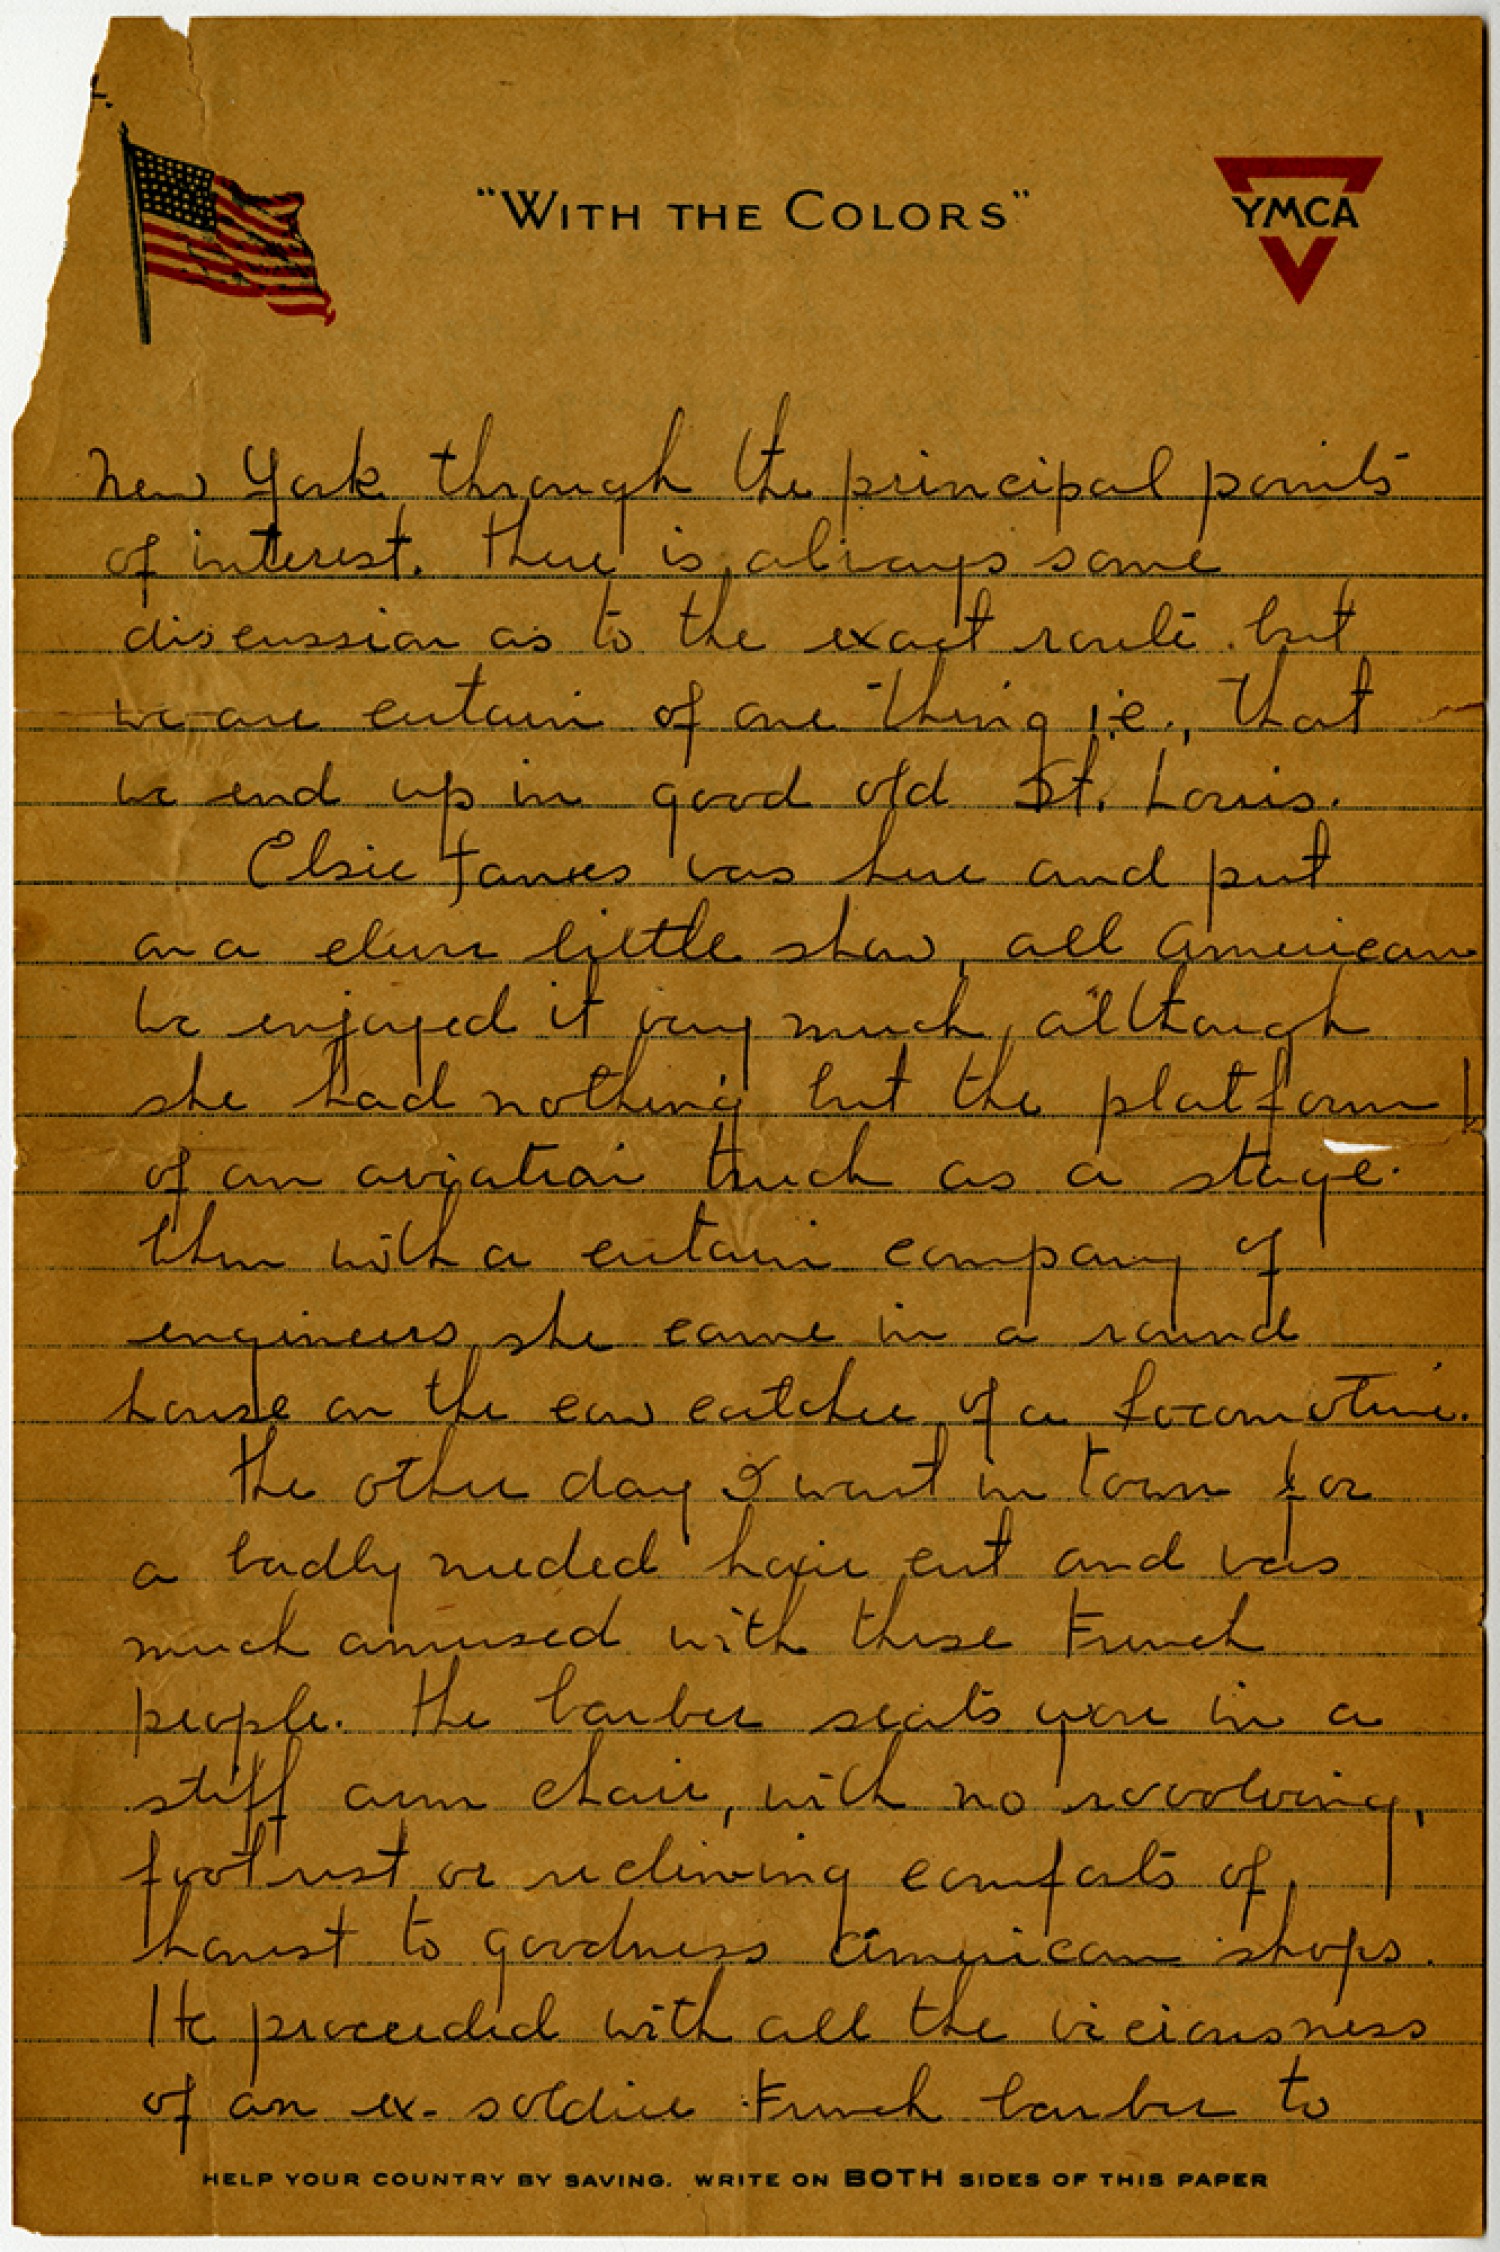 "WITH THE COLORS"
YMCA
New York through the principal points
of interest. There is always some
discussion as to the exact route but
we are certain of one thing i.e., that
we end up in good old St. Louis.
Elsie Janies was here and put
on a clever little show, all American
We enjoyed it very much, although
she had nothing but the platform
of an aviation truck as a stage.
Then with a certain company of
engineers she came in a round
house on the cow catcher of a locomotive.
The other day I went in town for
a badly needed hair cut and was
much amused with these French
people. The barber seats you in a
stiff arm chair, with no revolving,
footrest or reclining comforts of
honest to goodness American shops.
He proceeded with all the viciousness
of an ex-soldier French barber to
HELP YOUR COUNTRY BY SAVING. WRITE ON BOTH SIDES OF THIS PAPER